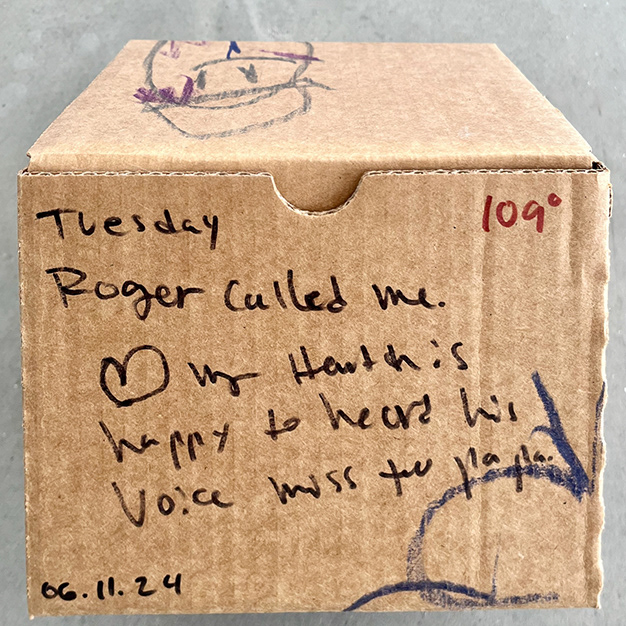 Tuesday
109°
Roger called me.
my Heart is
happy to heard his
Voice miss papa.
06.11.24